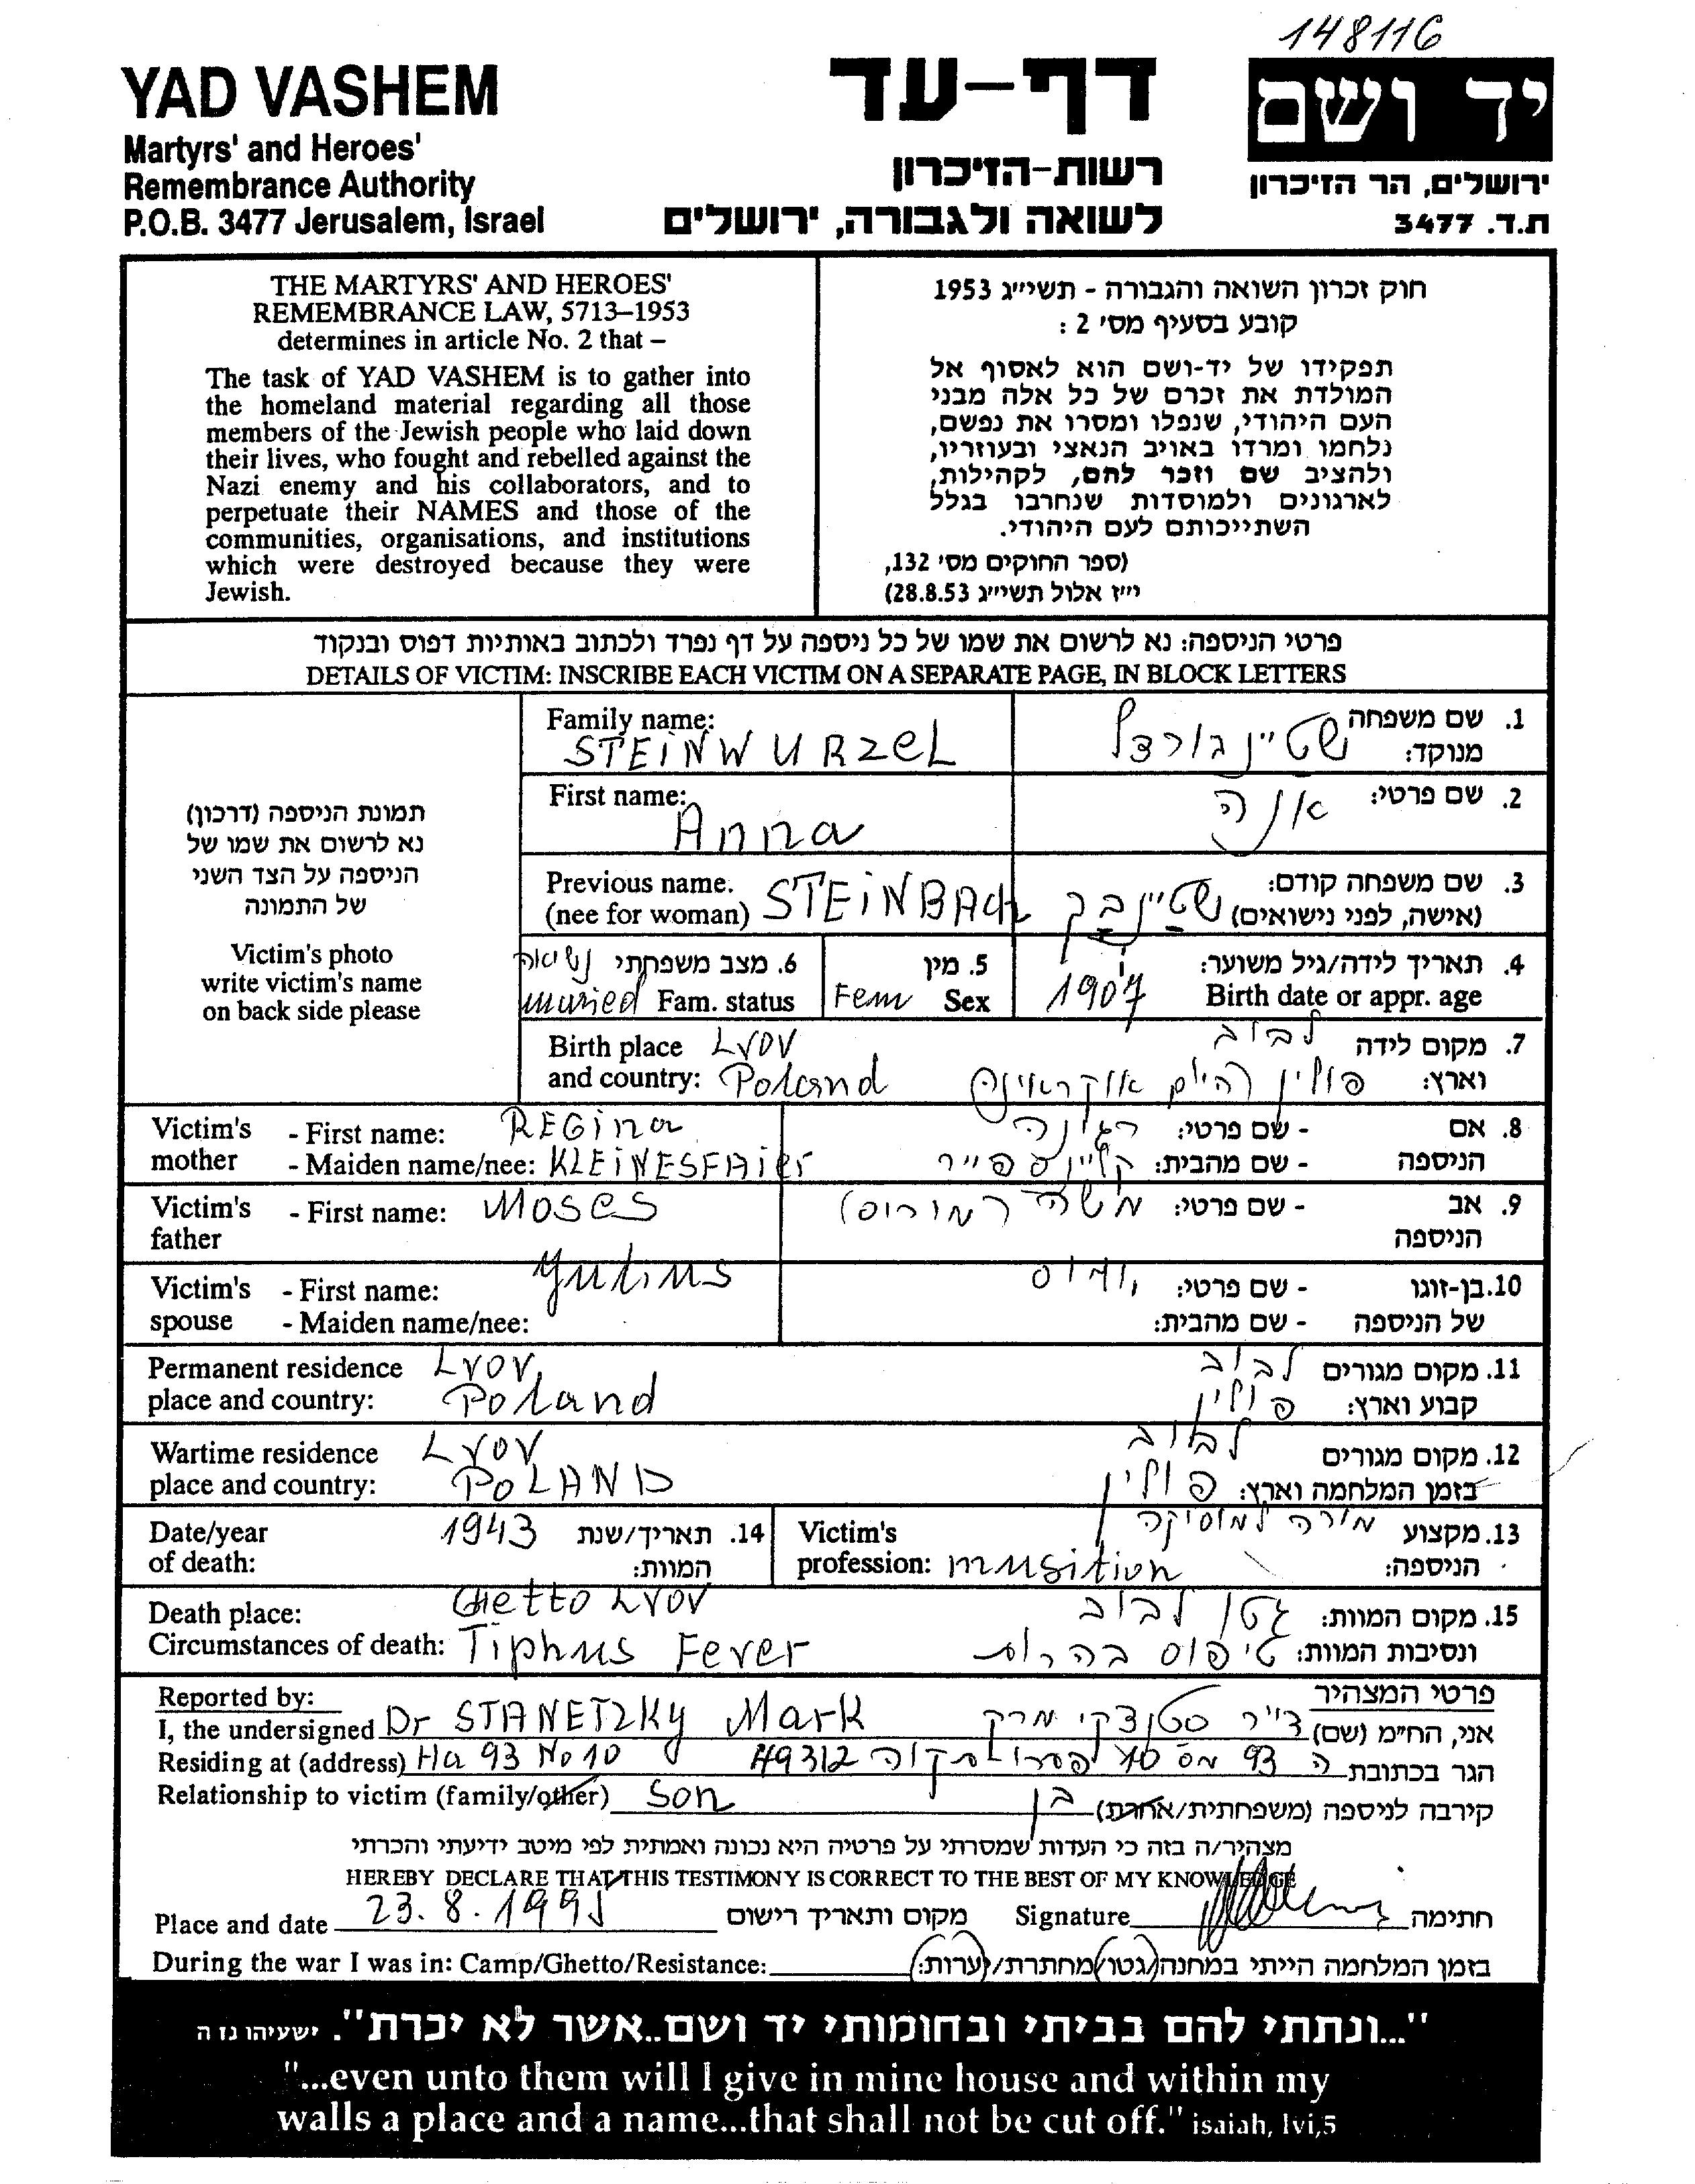 148116
YAD VASHEM
Martyrs' and Heroes'
Remembrance Authority
P.O.B. 3477 Jerusalem, Israel
דף-עד
רשות-הזיכרון
לשואה ולגבורה, ירושלים
יד ושם
ירושלים, הר הזיכרון
ת.ד. 3477
THE MARTYRS' AND HEROES'
REMEMBRANCE LAW, 5713–1953
determines in article No. 2 that –
The task of YAD VASHEM is to gather into
the homeland material regarding all those
members of the Jewish people who laid down
their lives, who fought and rebelled against the
Nazi enemy and his collaborators, and to
perpetuate their NAMES and those of the
communities, organisations, and institutions
which were destroyed because they were
Jewish.
חוק זכרון השואה והגבורה - תשי״ג 1953
קובע בסעיף מס׳ 2 :
תפקידו של יד-ושם הוא לאסוף אל
המולדת את זכרם של כל אלה מבני
העם היהודי, שנפלו ומסרו את נפשם,
נלחמו ומרדו באויב הנאצי ובעוזריו,
ולהציב שם וזכר להם, לקהילות,
לארגונים ולמוסדות שנחרבו בגלל
השתייכותם לעם היהודי.
(ספר החוקים מס׳ 132,
י״ז אלול תשי״ג 28.8.53)
פרטי הניספה: נא לרשום את שמו של כל ניספה על דף נפרד ולכתוב באותיות דפוס ובנקוד
DETAILS OF VICTIM: INSCRIBE EACH VICTIM ON A SEPARATE PAGE, IN BLOCK LETTERS
תמונת הניספה (דרכון)
נא לרשום את שמו של
הניספה על הצד השני
של התמונה
Victim's photo
write victim's name
on back side please
Family name: 1. שם משפחה
STEiNWURZeL שטיינוורצל מנוקד:
First name: 2. שם פרטי:
Anna אנה
Previous name. 3. שם משפחה קודם:
(nee for woman) STEiNBACh שטיינבך (אישה, לפני נישואים)
נשואה 6. מצב משפחתי 5. מין 4. תאריך לידה/גיל משוער:
muried Fam. status Fem Sex 1907 Birth date or appr. age
Birth place LVOV לבוב 7. מקום לידה
and country: Poland פולין (היום אוקראינה) וארץ:
Victim's - First name: REGina רגינה - שם פרטי: 8. אם
mother - Maiden name/nee: KLEiNESFAier קליינספייר - שם מהבית: הניספה
Victim's - First name: Moses משה (מוריס) - שם פרטי: 9. אב
father הניספה
Victim's - First name: Yulius יוליוס - שם פרטי: 10. בן-זוגו
spouse - Maiden name/nee: - שם מהבית: של הניספה
Permanent residence LVOV, לבוב 11. מקום מגורים
place and country: Poland פולין קבוע וארץ:
Wartime residence LVOV לבוב 12. מקום מגורים
place and country: POLAND פולין בזמן המלחמה וארץ:
Date/year 1943 14. תאריך/שנת Victim's מורה למוסיקה 13. מקצוע
of death: המוות: profession: musition הניספה:
Death place: GHetto LVOV גטו לבוב 15. מקום המוות:
Circumstances of death: Tiphus Fever טיפוס בהרות ונסיבות המוות:
Reported by: פרטי המצהיר
I, the undersigned Dr STANETZKy Mark ד״ר סטנצקי מרק אני, הח״מ (שם)
Residing at (address) Ha 93 No 10 49312 ה 93 מס 10 פתח תקוה הגר בכתובת
Relationship to victim (family/other) Son בן קירבה לניספה (משפחתית/אחרת)
מצהיר/ה בזה כי העדות שמסרתי על פרטיה היא נכונה ואמתית לפי מיטב ידיעתי והכרתי
HEREBY DECLARE THAT THIS TESTIMONY IS CORRECT TO THE BEST OF MY KNOWLEDGE
Place and date 23. 8. 1995 מקום ותאריך רישום Signature חתימה
During the war I was in: Camp/Ghetto/Resistance: בזמן המלחמה הייתי במחנה/גטו/מחתרת/יערות:
"...ונתתי להם בביתי ובחומותי יד ושם..אשר לא יכרת". ישעיהו נו ה
"...even unto them will I give in mine house and within my
walls a place and a name...that shall not be cut off." isaiah, lvi,5